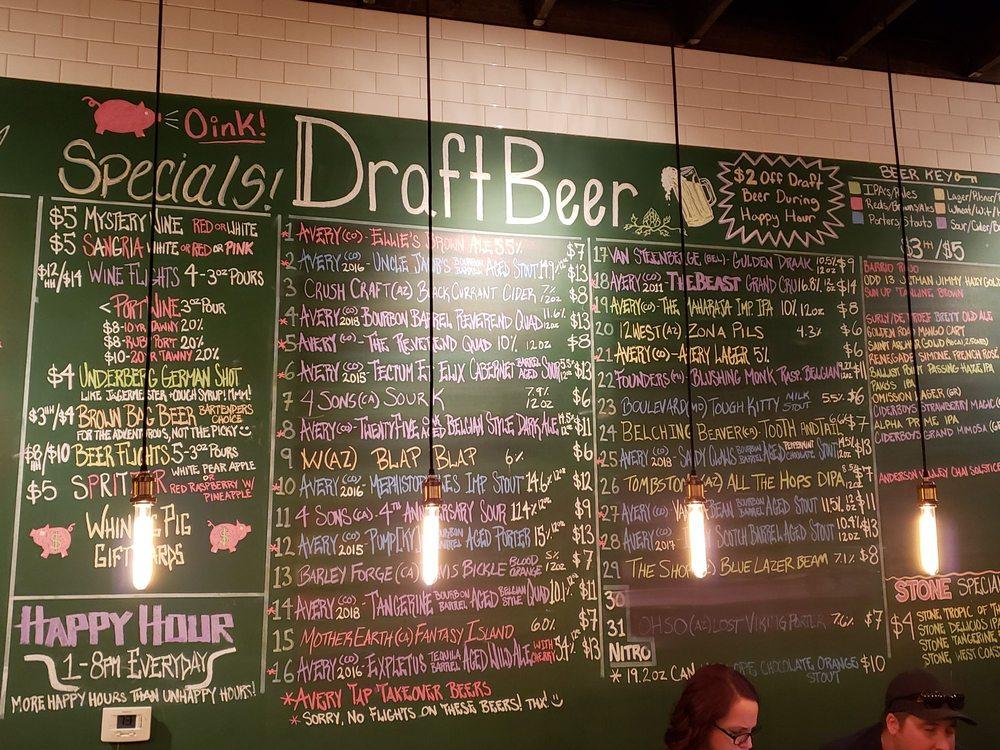 Oink!
Specials!
$5 MYSTERY WINE RED OR WHITE
$5 SANGRIA WHITE OR RED OR PINK
$12/$14 WINE FLIGHTS 4-3oz POURS
< PORT WINE 3oz POUR
$8-10YR TAWNY 20%
$8-RUBY PORT 20%
$10-20YR TAWNY 20%
$4 UNDERBERG GERMAN SHOT
LIKE JAGERMEISTER + COUGH SYRUP! MMM!
$3HH/$4 BROWN BAG BEER BARTENDERS CHOICE
FOR THE ADVENTUROUS, NOT THE PICKY
$8/$10 BEER FLIGHTS 5-3oz POURS
$5 SPRITZER WHITE PEAR APPLE OR RED RASPBERRY W/ PINEAPPLE
WHINING PIG
GIFT CARDS
HAPPY HOUR
1-8PM EVERYDAY
MORE HAPPY HOURS THAN UNHAPPY HOURS!
Draft Beer
*1 AVERY(CO)-ELLIE'S BROWN ALE 5.5% $7
*2 AVERY(CO) 2016-UNCLE JACOB'S BOURBON BARREL AGED STOUT $13
3 CRUSH CRAFT(AZ) BLACK CURRANT CIDER 7% 12oz $8
*4 AVERY(CO) 2018 BOURBON BARREL REVEREND QUAD 11.6% 12oz $13
*5 AVERY(CO)-THE REVEREND QUAD 10% 12oz $8
*6 AVERY(CO) 2015-TECTUM ET ELIX CABERNET BARREL AGED SOUR $13
7 4 SONS(CA) SOUR K 7.9% 12oz $6
*8 AVERY(CO)-TWENTY FIVE AGED BELGIAN STYLE DARK ALE $11
9 W(AZ) BLAP BLAP 6% $6
*10 AVERY(CO) 2016-MEPHISTOPHELES IMP. STOUT 14.6% 12oz $12
11 4 SONS(CA)-4TH ANNIVERSARY SOUR 11.4% 12oz $9
*12 AVERY(CO) 2015-PUMP[KY]N BOURBON BARREL AGED PORTER 15% 12oz $13
13 BARLEY FORGE(CA) TRAVIS BICKLE BLOOD ORANGE 5% 12oz $7
*14 AVERY(CO) 2018-TANGERINE BOURBON BARREL AGED BELGIAN STYLE QUAD 10.1% $11
15 MOTHER EARTH(CA) FANTASY ISLAND 6.0% $7
*16 AVERY(CO) 2016-EXPLETUS TEQUILA BARREL AGED WILD ALE WITH CHERRY $13
*AVERY TAP TAKEOVER BEERS
*SORRY, NO FLIGHTS ON THESE BEERS! THX!
$2 Off Draft
Beer During
Happy Hour
17 VAN STEENBERGE(BEL)-GULDEN DRAAK 10.5% 12oz $9
*18 AVERY(CO) 2011 THE BEAST GRAND CRU 16.8% 12oz $14
*19 AVERY(CO)-THE MAHARAJA IMP. IPA 10% 12oz $8
20 12 WEST(AZ) ZONA PILS 4.3% $6
*21 AVERY(CO)-AVERY LAGER 5% $6
22 FOUNDERS(MI) BLUSHING MONK RASP. BELGIAN $11
23 BOULEVARD(MO) TOUGH KITTY MILK STOUT 5.5% $6
24 BELCHING BEAVER(CA) TOOTH AND TAIL $7
*25 AVERY(CO) 2018-BOURBON BARREL AGED PEPPERMINT CHOCOLATE STOUT $13
26 TOMBSTONE(AZ) ALL THE HOPS DIPA $7
*27 AVERY(CO)-VANILLA BEAN BOURBON BARREL AGED STOUT $11
*28 AVERY(CO) SCOTCH BARREL AGED STOUT 10.4% $13
29 THE SHOP(CA) BLUE LAZER BEAM 7.1% $8
30
31 OHSO(AZ) LOST VIKING PORTER 7.6% $7
NITRO
* 19.2oz CAN CHOCOLATE ORANGE STOUT $10
BEER KEY
IPA's/Pales
Reds/Browns/Ales
Porters/Stouts
Lager/Pilsner
Wheat/Wit
Sour/Cider
$3HH/$5
BARRIO ROJO
ODD 13 JIMMY
SUN UP TRAMLINE BROWN
BRETT OLD ALE
GOLDEN ROAD MANGO CART
SAINT ARCHER GOLD
RENEGADE SIMONE FRENCH ROSÉ
BALLAST POINT PASSING HAZE IPA
PANDS IPA
OMISSION LAGER (GR)
CIDERBOYS STRAWBERRY MAGIC
ALPHA PRIME IPA
CIDERBOYS GRAND MIMOSA
ANDERSON VALLEY SOLSTICE
STONE SPECIA
$4 STONE TROPIC OF
STONE DELICIOUS IPA
STONE TANGERINE
STONE WEST COAS